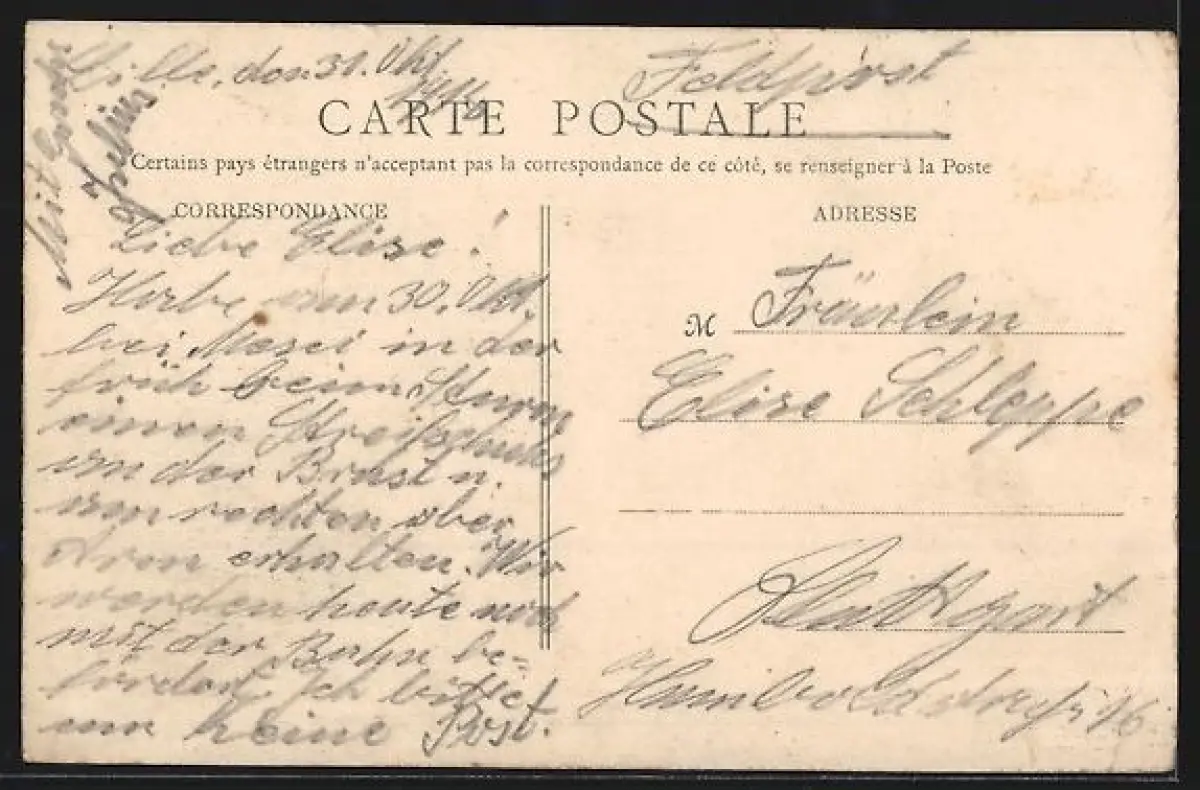 Lille, den 31. Okt.
Feldpost
CARTE POSTALE
Certains pays étrangers n'acceptant pas la correspondance de ce côté, se renseigner à la Poste
CORRESPONDANCE
Liebe Elise!
Habe am 30. Okt.
bei in der
früh beim Sturm
einen Streifschuß
an der Brust u.
am rechten Ober
Arm erhalten. Wir
werden heute noch
mit der Bahn be-
fördert. Ich
nur keine Post.
Mit Gruß
ADRESSE
M Fräulein
Elise Schleppe
Stuttgart
Humboldstraße 16.